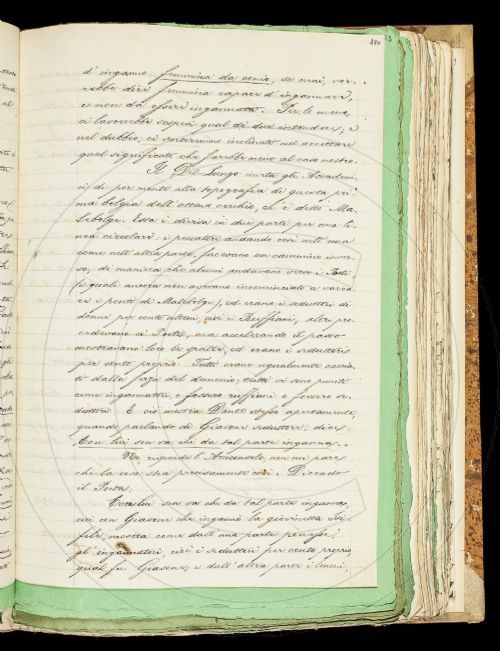 380
d'inganno femmina da conio, se mai, vor-
rebbe dire femmina capace d'ingannare,
e non da essere ingannata. Per lo meno,
ci lascerebbe sospesi qual de' due intendere; e
nel dubbio, ci sentiremmo inclinati ad accettare
quel significato che farebbe meno al caso nostro.
Il Del Lungo invita gli Accademi-
ci di por mente alla topografia di questa pri-
ma bolgia dell'ottavo cerchio, che è detto Ma-
lebolge. Essa è divisa in due parti per una li-
nea circolare: i peccatori andando così nell'una
come nell'altra parte, facevano un cammino inver-
so, di maniera che alcuni andavano verso i Poeti
(i quali ancora non avevano incominciato a varca-
re i ponti di Malebolge), ed erano i seduttori di
donne per conto altrui, cioè i Ruffiani, altri pro-
cedevano coi Poeti, ma accelerando il passo
mostravano loro le spalle, ed erano i seduttori
per conto proprio. Tutti erano ugualmente caccia-
ti dalla sferza del demonio; tutti vi sono puniti
come ingannatori, o fossero ruffiani o fossero se-
duttori. E ciò mostra Dante stesso apertamente,
quando parlando di Giasone seduttore, dice:
Con lui sen va chi da tal parte inganna.
Ma risponde l'Arciconsolo, non mi pare
che la cosa stia precisamente così. Dicendo
il Poeta,
Con lui sen va chi da tal parte inganna,
cioè con Giasone che ingannò la giovinetta Isi-
file, mostra come dall'una parte penassero
gl'ingannatori, cioè i seduttori per conto proprio,
qual fu Giasone; e dall'altra parte i lenoni,